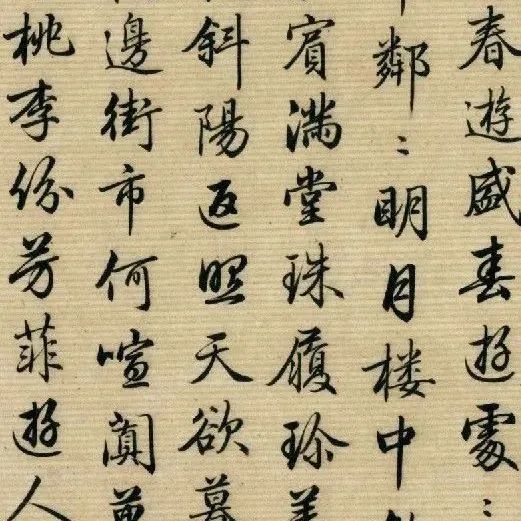 春遊盛春遊處〻
鄰〻明月楼中
賓滿堂珠履珍
斜陽返照天欲暮
邊街市何喧闐
桃李份芳菲遊人